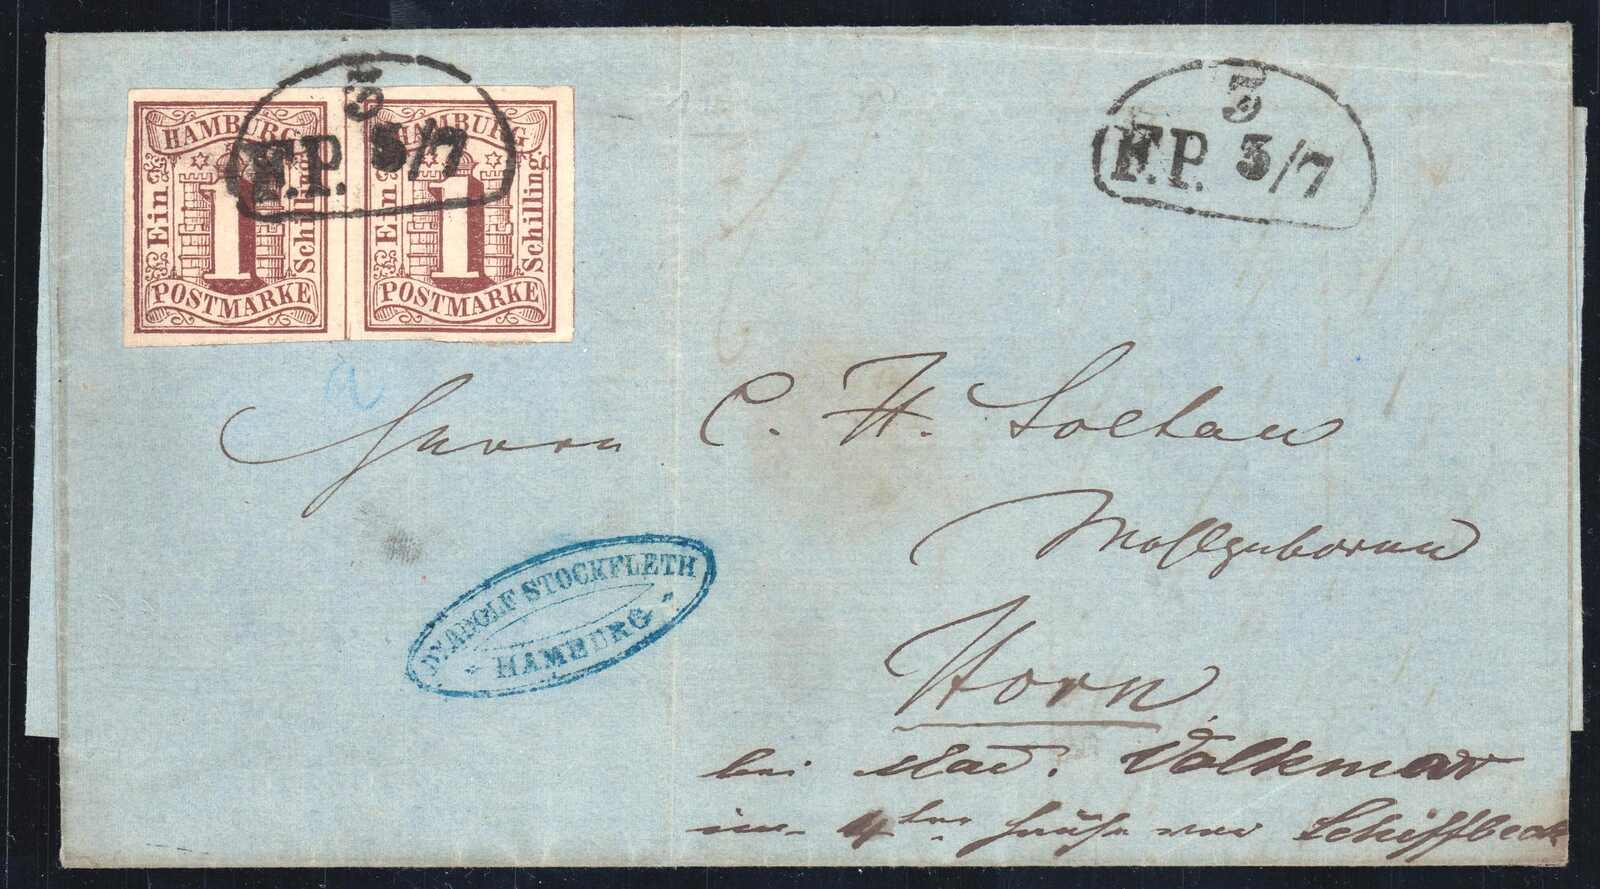 HAMBURG
Ein
1
Schilling
POSTMARKE
HAMBURG
Ein
1
Schilling.
POSTMARKE
3
F.P. 3/7
3
F.P. 3/7
Herrn C. H. Soltau
Wohlgeboren
Horn
bei Mad. Volkmar
im 4ten Hause vor Schiffbeck
ADOLF STOCKFLETH
HAMBURG